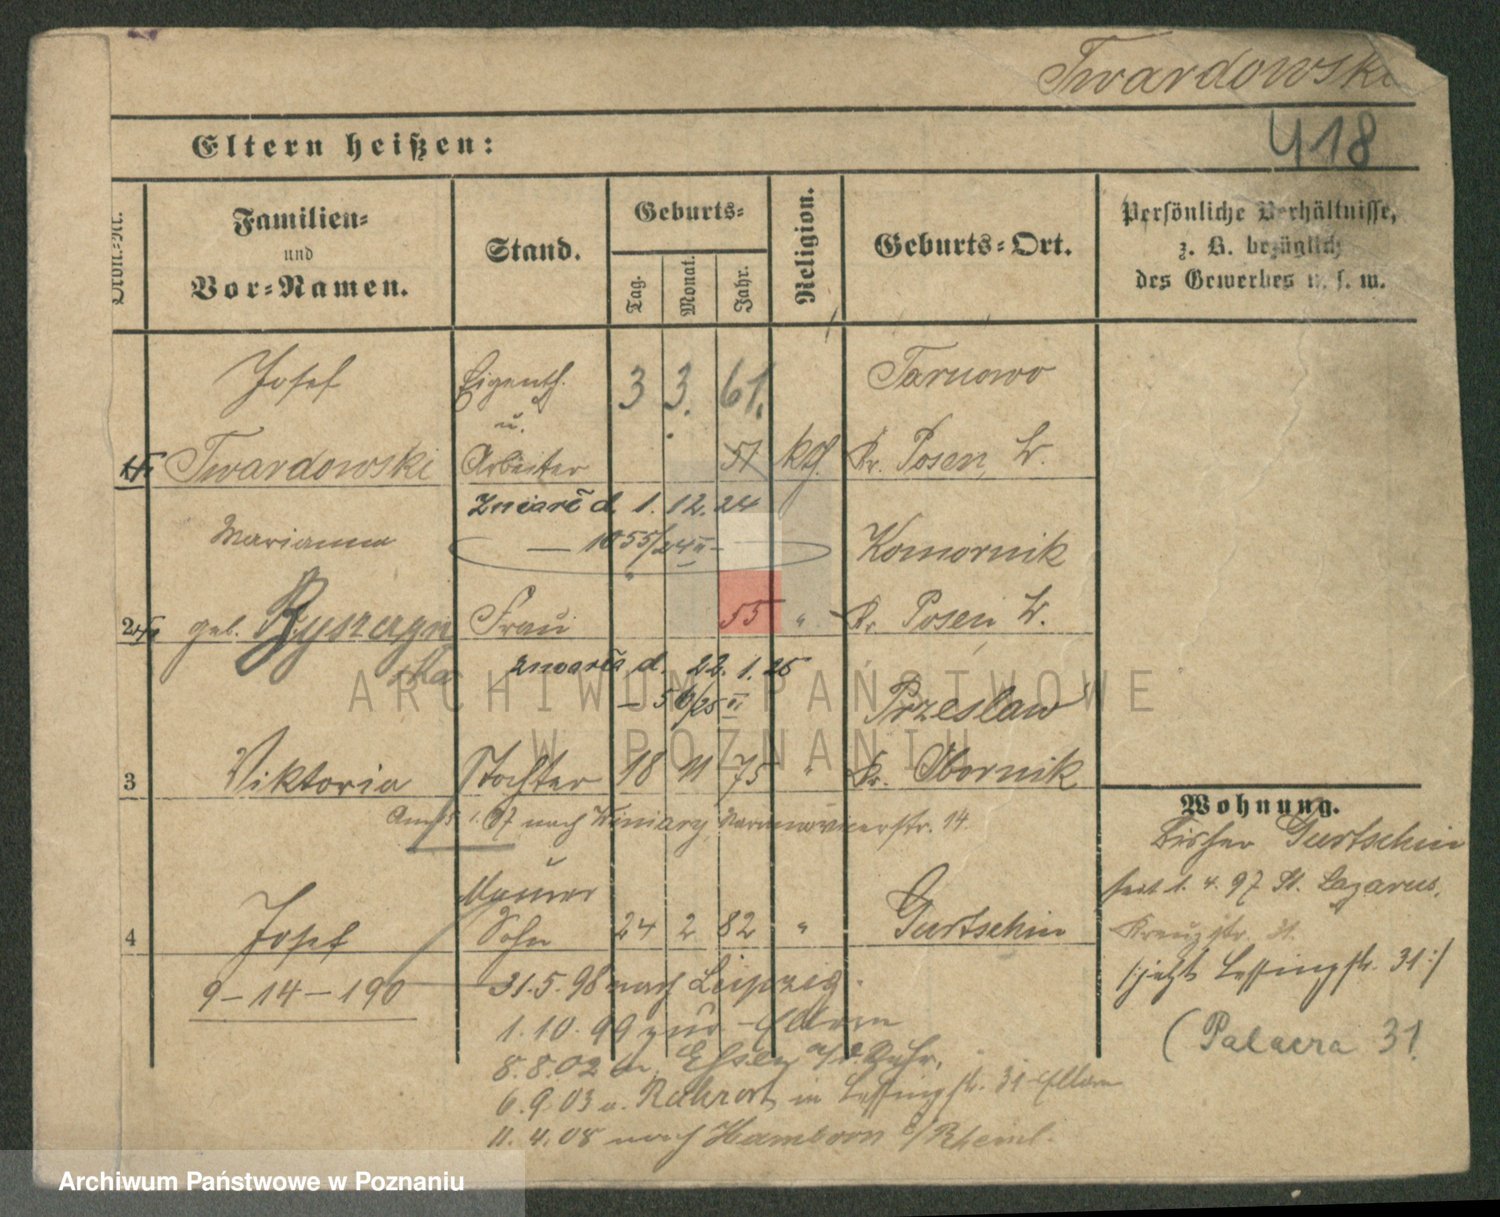 Twardowski
418
Eltern heißen:
Ordn.-Nr.
Familien-
und
Vor-Namen.
Stand.
Geburts-
Tag.
Monat.
Jahr.
Religion.
Geburts-Ort.
Persönliche Verhältnisse,
z. B. bezüglich
des Gewerbes u. s. w.
Josef Eigenth. 3 3. 61. Tarnowo
u.
Twardowski Arbeiter 57 kth. Kr. Posen, W.
Zmarł d. 1. 12. 24
Marianna — 1055/24 II — Komornik
2 geb. Ryszczyń Frau 55 " Kr. Posen W.
ska zmarła d. 22. 1. 25
— 56/25 VI Przeslaw
3 Viktoria Tochter 18 11 75 " Kr. Obornik
nach Winiary 14.
Wohnung.
Bisher Gurtschin
seit 1. 4. 97 St. Lazarus,
Kreuzstr. 31.
/:jetzt Lessingstr. 31:/
(Palacza 31.
Maurer
4 Josef Sohn 24 2 82 " Gurtschin
9-14-190
31.5.98 nach Leipzig.
1.10.99 zur Eltern
8.8.02 n. Essen a/d Ruhr.
6.9.03 v. Ruhrort in Lessingstr. 31 Eltern
11.4.08 nach Hamborn a/Rheinl.
ARCHIWUM PAŃSTWOWE
W POZNANIU
Archiwum Państwowe w Poznaniu